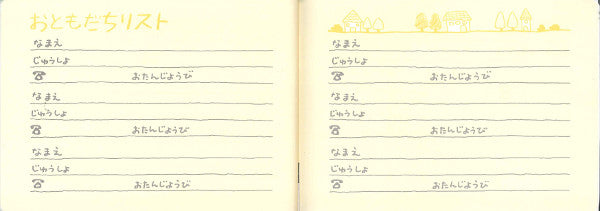 おともだちリスト
なまえ
じゅうしょ
☎ おたんじょうび
なまえ
じゅうしょ
☎ おたんじょうび
なまえ
じゅうしょ
☎ おたんじょうび
なまえ
じゅうしょ
☎ おたんじょうび
なまえ
じゅうしょ
☎ おたんじょうび
なまえ
じゅうしょ
☎ おたんじょうび